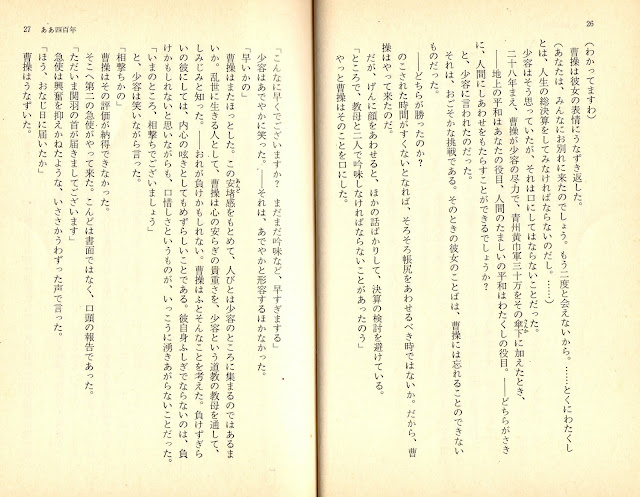 26
(わかってますわ)
曹操は彼女の表情にうなずき返した。
(あなたは、みんなにお別れに来たのでしょう。もう二度と会えないから。……とくにわたくし
とは、人生の総決算をしてみなければならないのだし。……)
少容はそう思っていたが、それは口にしてはならないことだった。
二十八年まえ、曹操が少容の尽力で、青州黄巾軍三十万をその傘下に加えたとき、
――地上の平和はあなたの役目、人間のたましいの平和はわたくしの役目。――どちらがさき
に、人間にしあわせをもたらすことができるでしょうか?
と、少容に言われたのだった。
それは、おごそかな挑戦である。そのときの彼女のことばは、曹操には忘れることのできない
ものだった。
――どちらが勝ったのか?
のこされた時間がすくないとなれば、そろそろ帳尻をあわせるべき時ではないか。だから、曹
操はやって来たのだ。
だが、げんに顔をあわせると、ほかの話ばかりして、決算の検討を避けている。
「ところで、教母と二人で吟味しなければならないことがあったのう」
やっと曹操はそのことを口にした。
27 ああ四百年
「こんなに早くでございますか? まだまだ吟味など、早すぎまする」
少容はあでやかに笑った。――それは、あでやかと形容するほかなかった。
「早いかの」
曹操はまたほっとした。この安堵感をもとめて、人びとは少容のところに集まるのではあるま
いか。乱世に生きる人として、曹操は心の安らぎの貴重さを、少容という道教の教母を通して、
しみじみと知った。――おれが負けかもしれない。曹操はふとそんなことを考えた。負けずぎら
いの彼にしては、内心の呟きとしてもめずらしいことである。彼自身ふしぎでならないのは、負
けかもしれないと思いながらも、口惜しさというものが、いっこうに湧きあがらないことだった。
「いまのところ、相撃ちでございましょう」
と、少容は笑いながら言った。
「相撃ちかの」
曹操はその評価が納得できなかった。
そこへ第二の急使がやって来た。こんどは書面ではなく、口頭の報告であった。
「ただいま関羽の首が届きましてございます」
急使は興奮を抑えかねたような、いささかうわずった声で言った。
「ほう、おなじ日に届いたか」
曹操はうなずいた。